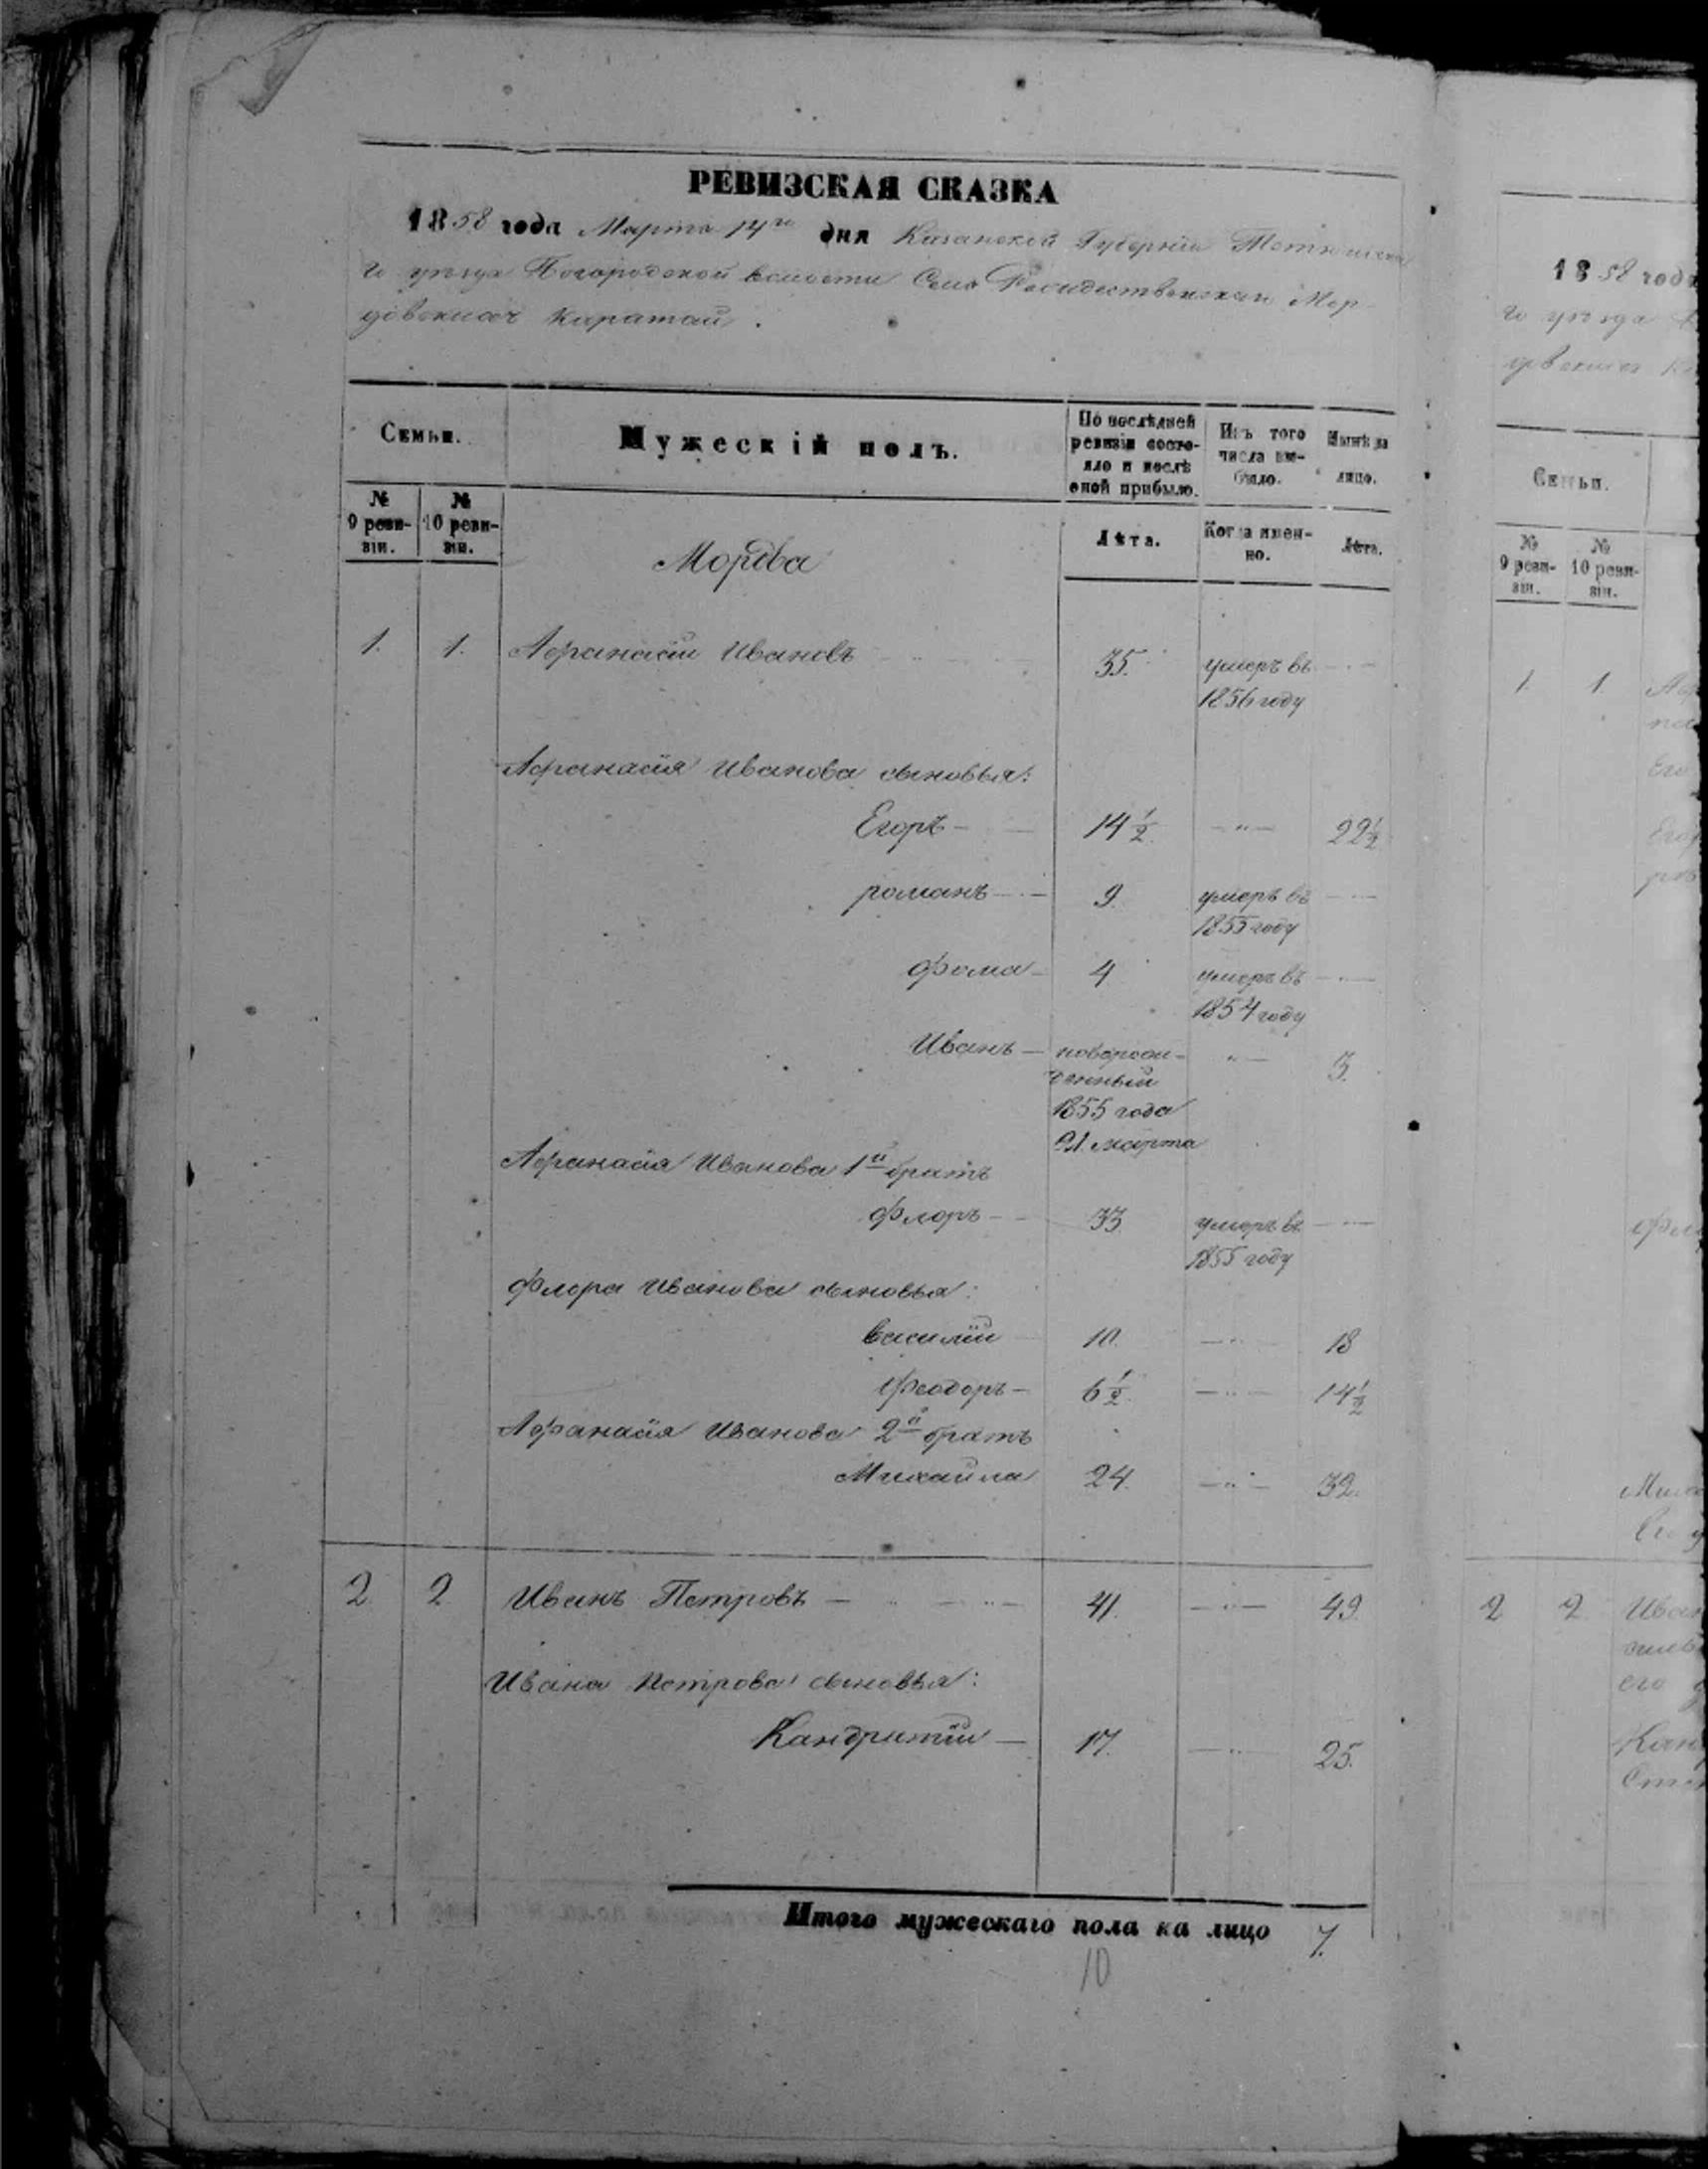 РЕВИЗСКАЯ СКАЗКА
1858 года Марта 14го дня Казанской Губернии Тетюшска
го уѣзда Богородской волости Село Рождественскихъ Мор
довскихъ Каратай.
Семьи.
Мужескій полъ.
По послѣдней ревизіи состояло и послѣ оной прибыло.
Изъ того числа выбыло.
Нынѣ на лицо.
№ 9 ревизіи.
№ 10 ревизіи.
Лѣта.
Когда именно.
Лѣта.
Мордва
1. 1. Афанасій Ивановъ 35. умеръ въ
1856 году
Афанасія Иванова сыновья:
Егоръ 14 1/2 22 1/2
романъ 9. умеръ въ
1855 году
Фома 4 умеръ въ
1854 году
Иванъ новорож- 3.
денный
1855 года
21. марта
Афанасія Иванова 1й братъ
Флоръ 33 умеръ въ
1855 году
Флора Иванова сыновья:
василій 10. 18
Феодоръ 6 1/2 14 1/2
Афанасія Иванова 2й братъ
Михайла 24. 32.
2 2 Иванъ Петровъ 41. 49.
Ивана Петрова сыновья:
Кандратій 17. 25.
Итого мужескаго пола на лицо 7.
10
1858 года
го уѣзда
Семьи.
№ 9 ревизіи.
№ 10 ревизіи.
1. 1.
2 2